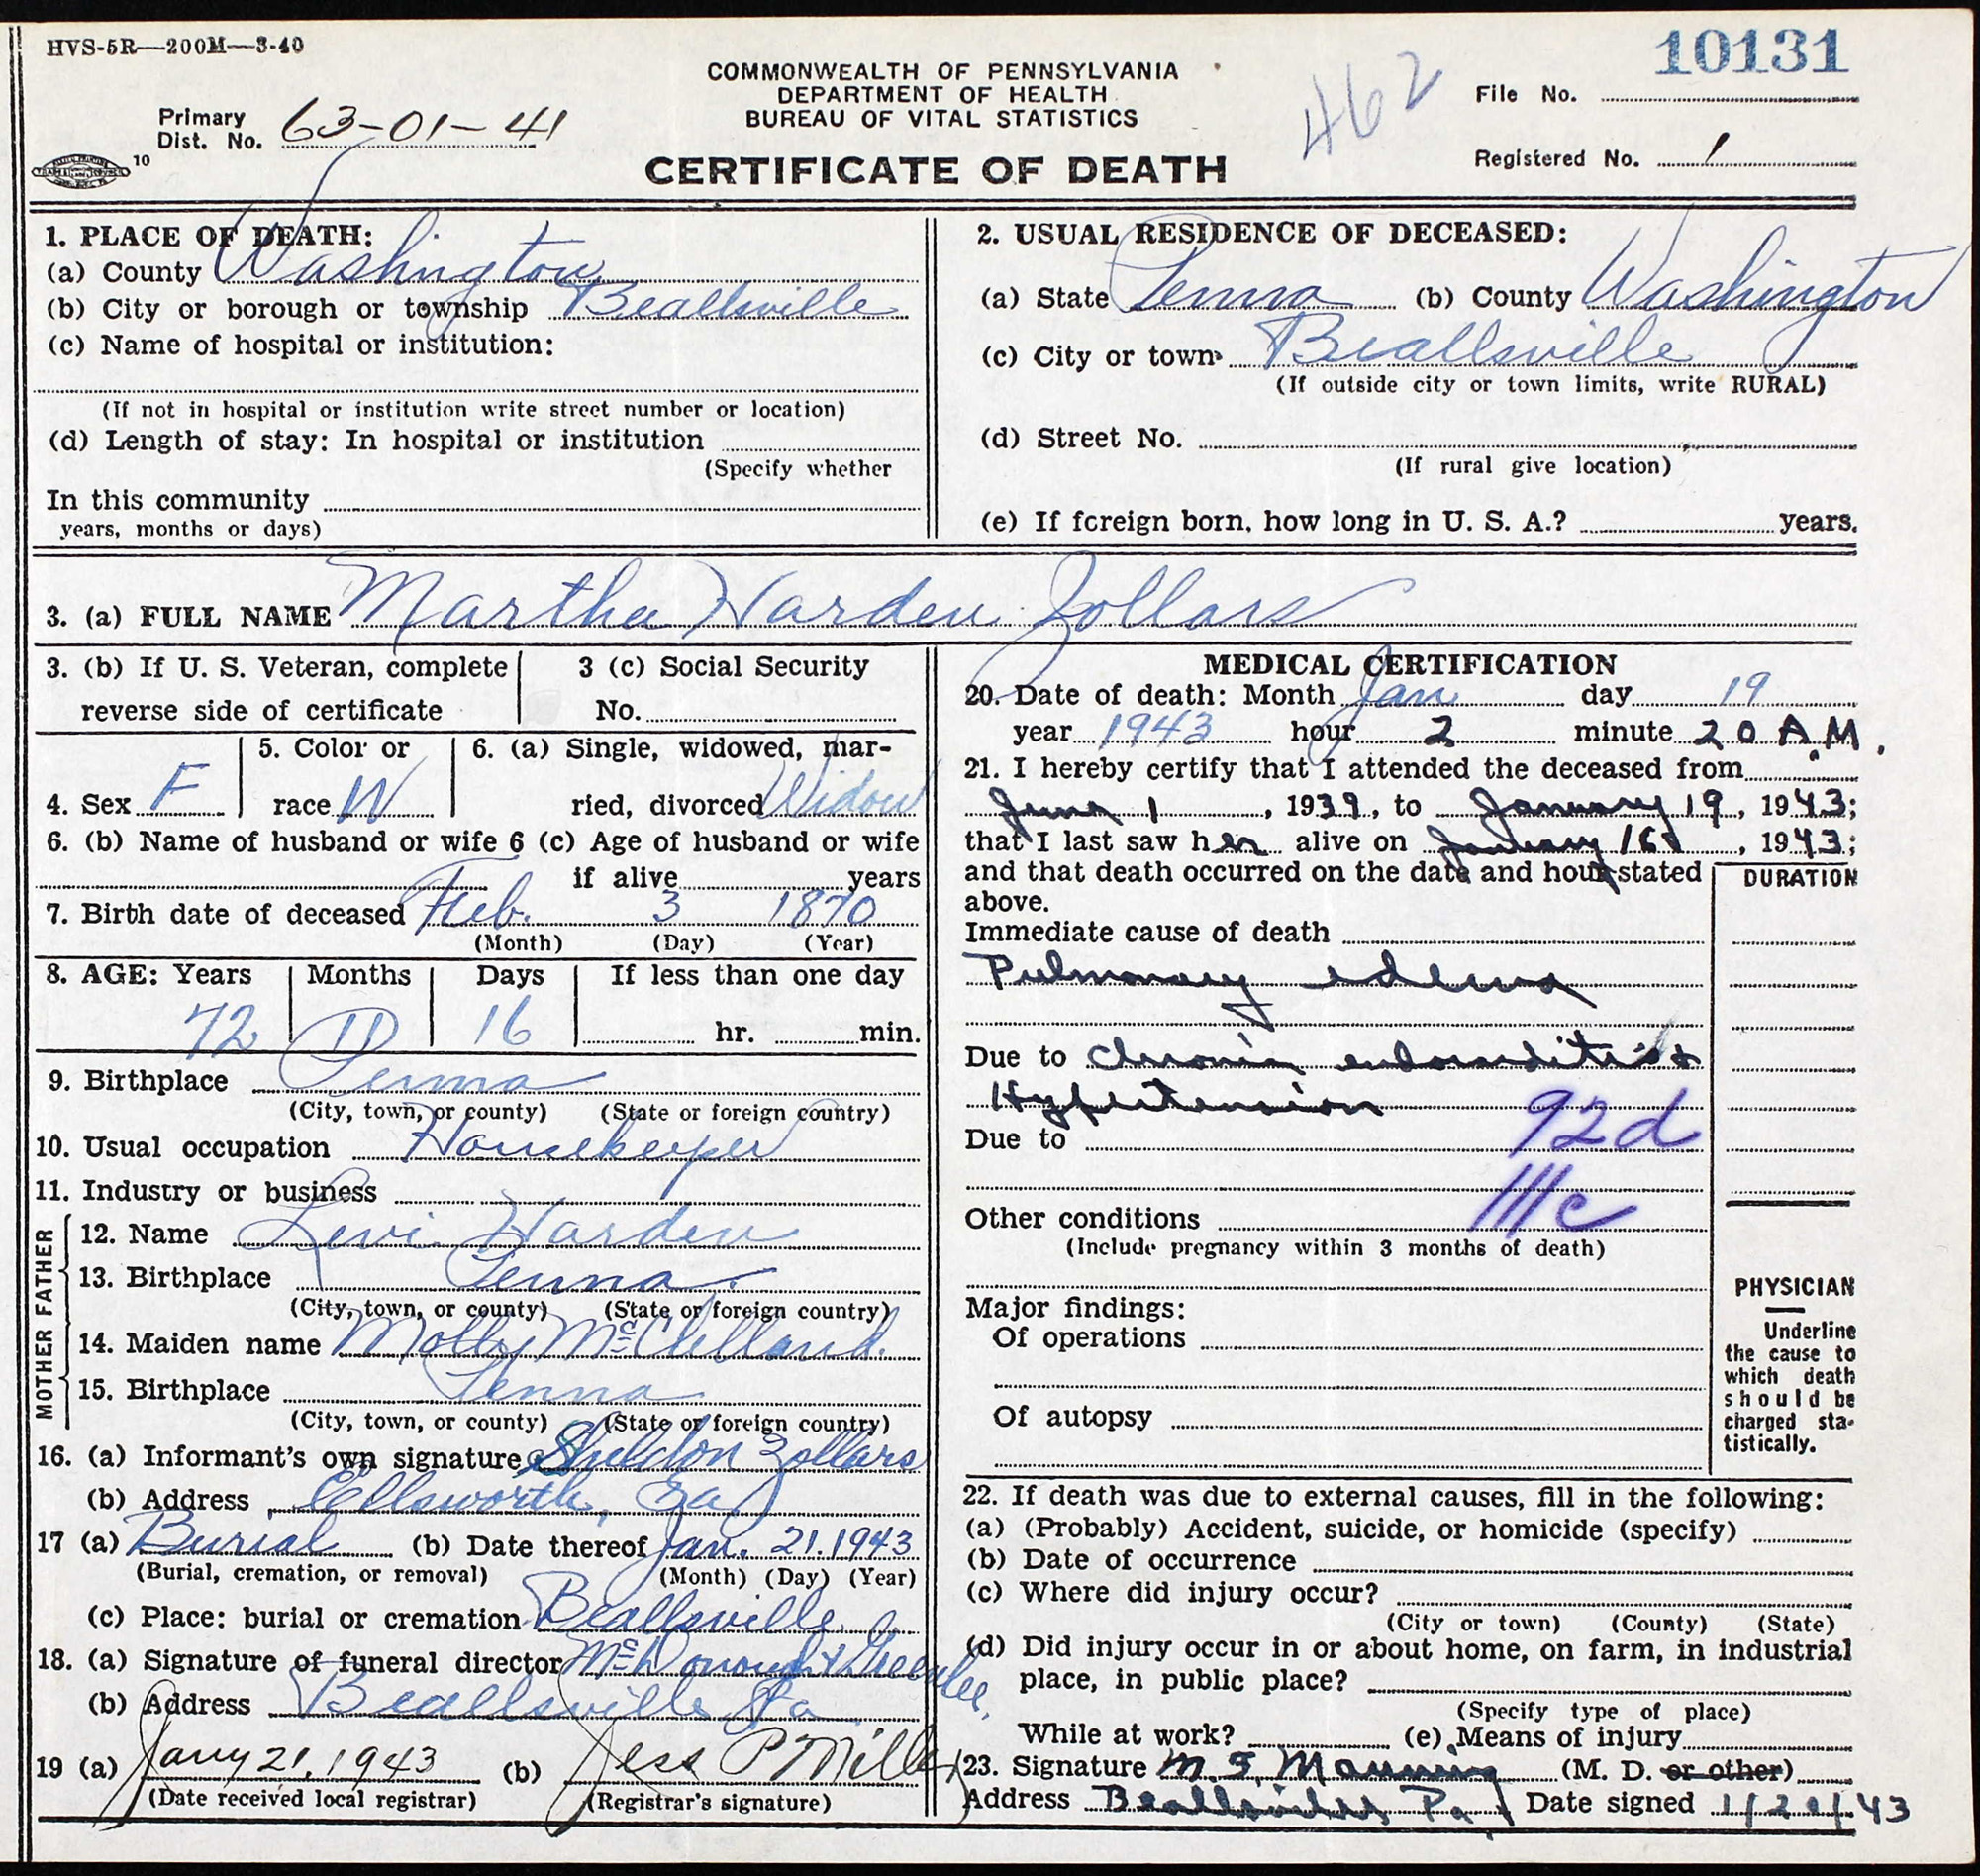 HVS-5R—200M—3-40
10131
COMMONWEALTH OF PENNSYLVANIA
DEPARTMENT OF HEALTH
BUREAU OF VITAL STATISTICS
CERTIFICATE OF DEATH
462
File No.
Primary
Dist. No. 63-01-41
Registered No. 1
10
1. PLACE OF DEATH:
(a) County Washington
(b) City or borough or township Beallsville
(c) Name of hospital or institution:
(If not in hospital or institution write street number or location)
(d) Length of stay: In hospital or institution
(Specify whether
In this community
years, months or days)
2. USUAL RESIDENCE OF DECEASED:
(a) State Penna (b) County Washington
(c) City or town Beallsville
(If outside city or town limits, write RURAL)
(d) Street No.
(If rural give location)
(e) If foreign born, how long in U. S. A.? years.
3. (a) FULL NAME Martha Harden Zollars
3. (b) If U. S. Veteran, complete
reverse side of certificate
3 (c) Social Security
No.
4. Sex F
5. Color or
race W
6. (a) Single, widowed, mar-
ried, divorced Widow
6. (b) Name of husband or wife 6 (c) Age of husband or wife
if alive years
7. Birth date of deceased Feb. 3 1870
(Month) (Day) (Year)
8. AGE: Years Months Days If less than one day
72 11 16 hr. min.
9. Birthplace Penna
(City, town, or county) (State or foreign country)
10. Usual occupation Housekeeper
11. Industry or business
FATHER
12. Name Levi Harden
13. Birthplace Penna.
(City, town, or county) (State or foreign country)
MOTHER
14. Maiden name Molly McClelland.
15. Birthplace Penna
(City, town, or county) (State or foreign country)
16. (a) Informant's own signature Sheldon Zollars
(b) Address Ellsworth, Pa
17 (a) Burial (b) Date thereof Jan. 21. 1943
(Burial, cremation, or removal) (Month) (Day) (Year)
(c) Place: burial or cremation Beallsville
18. (a) Signature of funeral director McDonough & Greenlee.
(b) Address Beallsville Pa
19 (a) Jany 21, 1943 (b) Jess P Miller
(Date received local registrar) (Registrar's signature)
MEDICAL CERTIFICATION
20. Date of death: Month Jan day 19
year 1943 hour 2 minute 20 A.M.
21. I hereby certify that I attended the deceased from
June 1, 1939, to January 19, 1943;
that I last saw her alive on January 18, 1943;
and that death occurred on the date and hour stated
above.
DURATION
Immediate cause of death
Pulmonary edema
Due to Chronic endocarditis &
Hypertension
92d
Due to
111c
Other conditions
(Include pregnancy within 3 months of death)
Major findings:
Of operations
Of autopsy
PHYSICIAN
Underline
the cause to
which death
should be
charged sta-
tistically.
22. If death was due to external causes, fill in the following:
(a) (Probably) Accident, suicide, or homicide (specify)
(b) Date of occurrence
(c) Where did injury occur?
(City or town) (County) (State)
(d) Did injury occur in or about home, on farm, in industrial
place, in public place?
(Specify type of place)
While at work? (e) Means of injury
23. Signature M. F. Manning (M. D. or other)
Address Beallsville, Pa Date signed 1/20/43